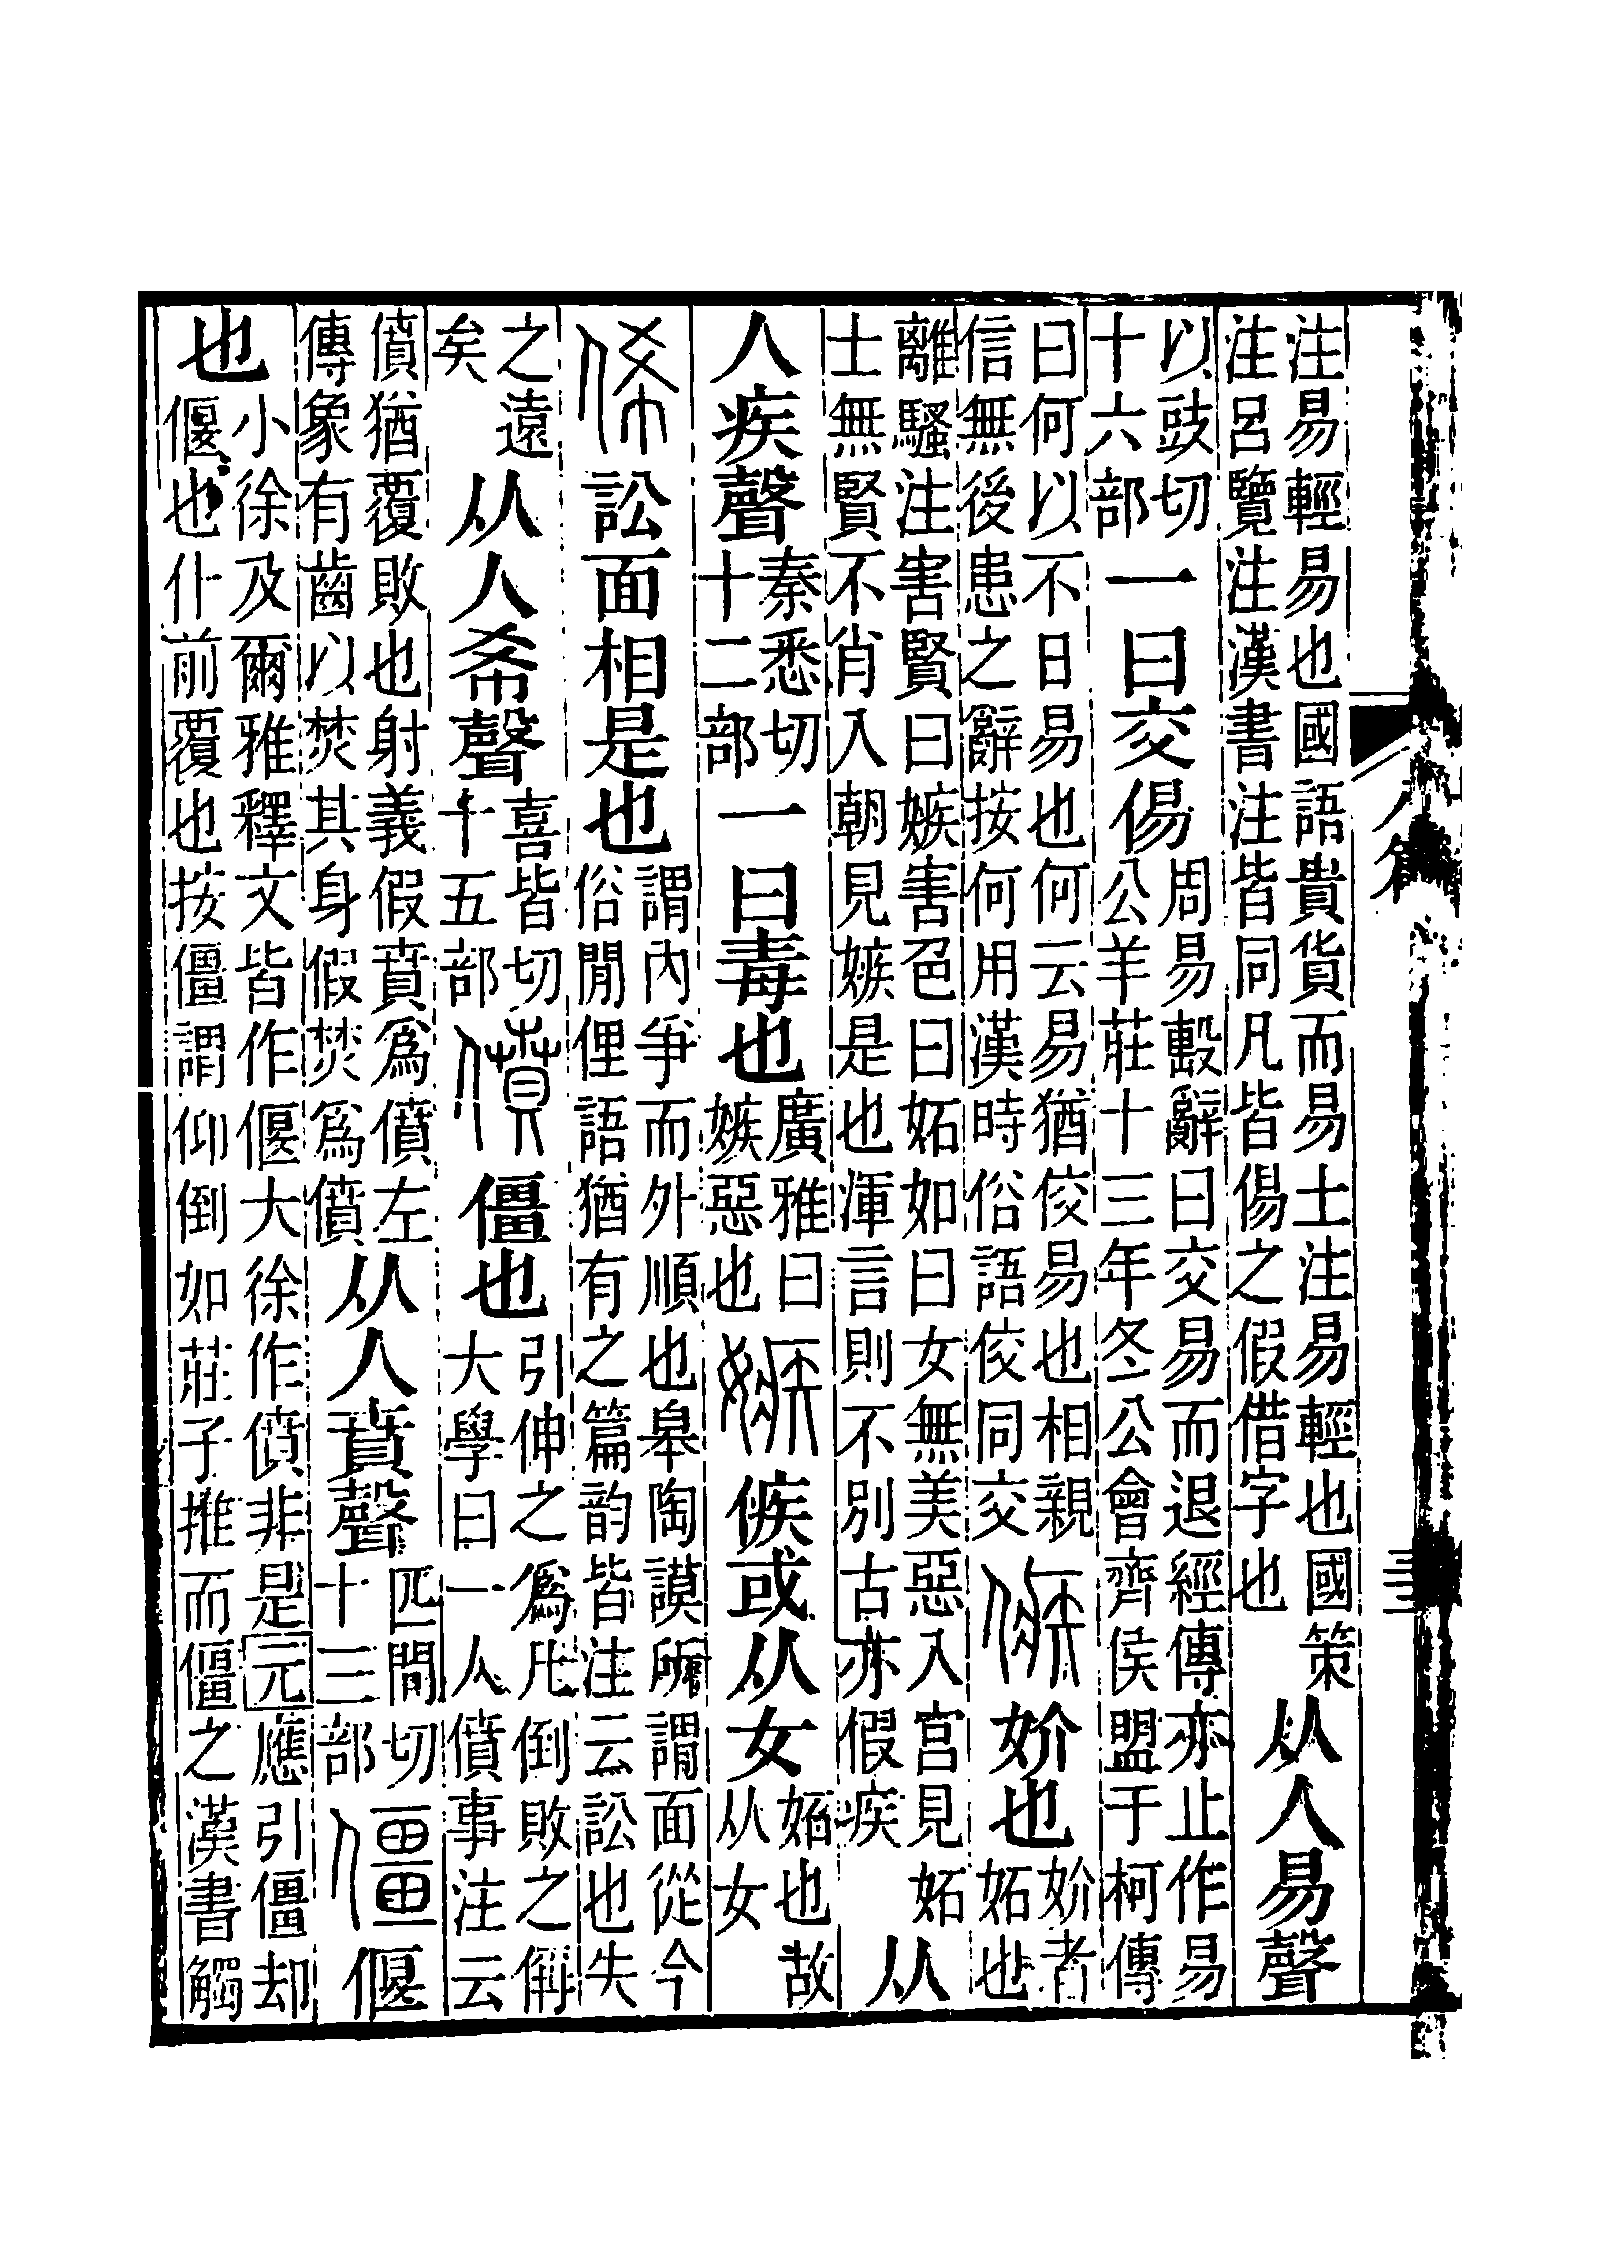 注易輕易也國語貴貨而易土注易輕也國策注呂覽注漢書注皆同凡皆傷之假借字也从人易聲
以豉切十六部一曰交傷周易毄辭曰交易而退經傳亦止作易公羊莊十三年冬公會齊侯盟于柯傳
曰何以不日易也何云易猶佼易也相親信無後患之辭按何用漢時俗語佼同交㑵妎也妎者妬也
離騷注害賢曰嫉害色曰妬如曰女無美惡入宮見妬士無賢不肖入朝見嫉是也渾言則不別古亦假疾从
人疾聲秦悉切十二部一曰毒也廣雅曰嫉惡也嫉㑵或从女也故从女
俙訟面相是也謂內爭而外順也皋陶謨所謂面從今俗閒俚語猶有之篇韵皆注云訟也失
之遠矣从人希聲喜皆切十五部僨僵也引伸之爲凡倒敗之偁大學曰一人僨事注云
僨猶覆敗也射義假賁爲僨左傳象有齒以焚其身假焚爲僨从人賁聲匹間切十三部僵偃
也小徐及爾雅釋文皆作偃大徐作僨非是元應引僵却偃也仆前覆也按僵謂仰倒如莊子推而僵之漢書觸